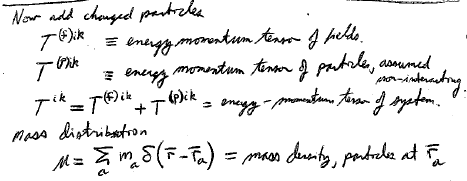 Now add charged particles
T^(f)ik ≡ energy momentum tensor of fields.
T^(p)ik ≡ energy momentum tensor of particles, assumed
non-interacting
T^ik = T^(f)ik + T^(p)ik = energy-momentum tensor of system.
mass distribution
μ = Σ_a m_a δ(r̄ - r̄_a) = mass density, particles at r̄_a